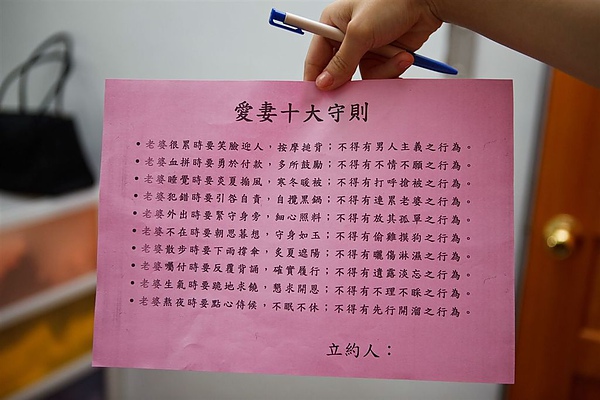 愛妻十大守則
• 老婆很累時要笑臉迎人，按摩搥背；不得有男人主義之行為。
• 老婆血拼時要勇於付款，多所鼓勵；不得有不情不願之行為。
• 老婆睡覺時要炎夏搧風，寒冬暖被；不得有打呼搶被之行為。
• 老婆犯錯時要引咎自責，自攬黑鍋；不得有連累老婆之行為。
• 老婆外出時要緊守身旁，細心照料；不得有放其孤單之行為。
• 老婆不在時要朝思暮想，守身如玉；不得有偷雞摸狗之行為。
• 老婆散步時要下雨撐傘，炎夏遮陽；不得有曬傷淋濕之行為。
• 老婆囑付時要反覆背誦，確實履行；不得有遺露淡忘之行為。
• 老婆生氣時要跪地求饒，懇求開恩；不得有不理不睬之行為。
• 老婆熬夜時要點心侍候，不眠不休；不得有先行開溜之行為。
立約人：